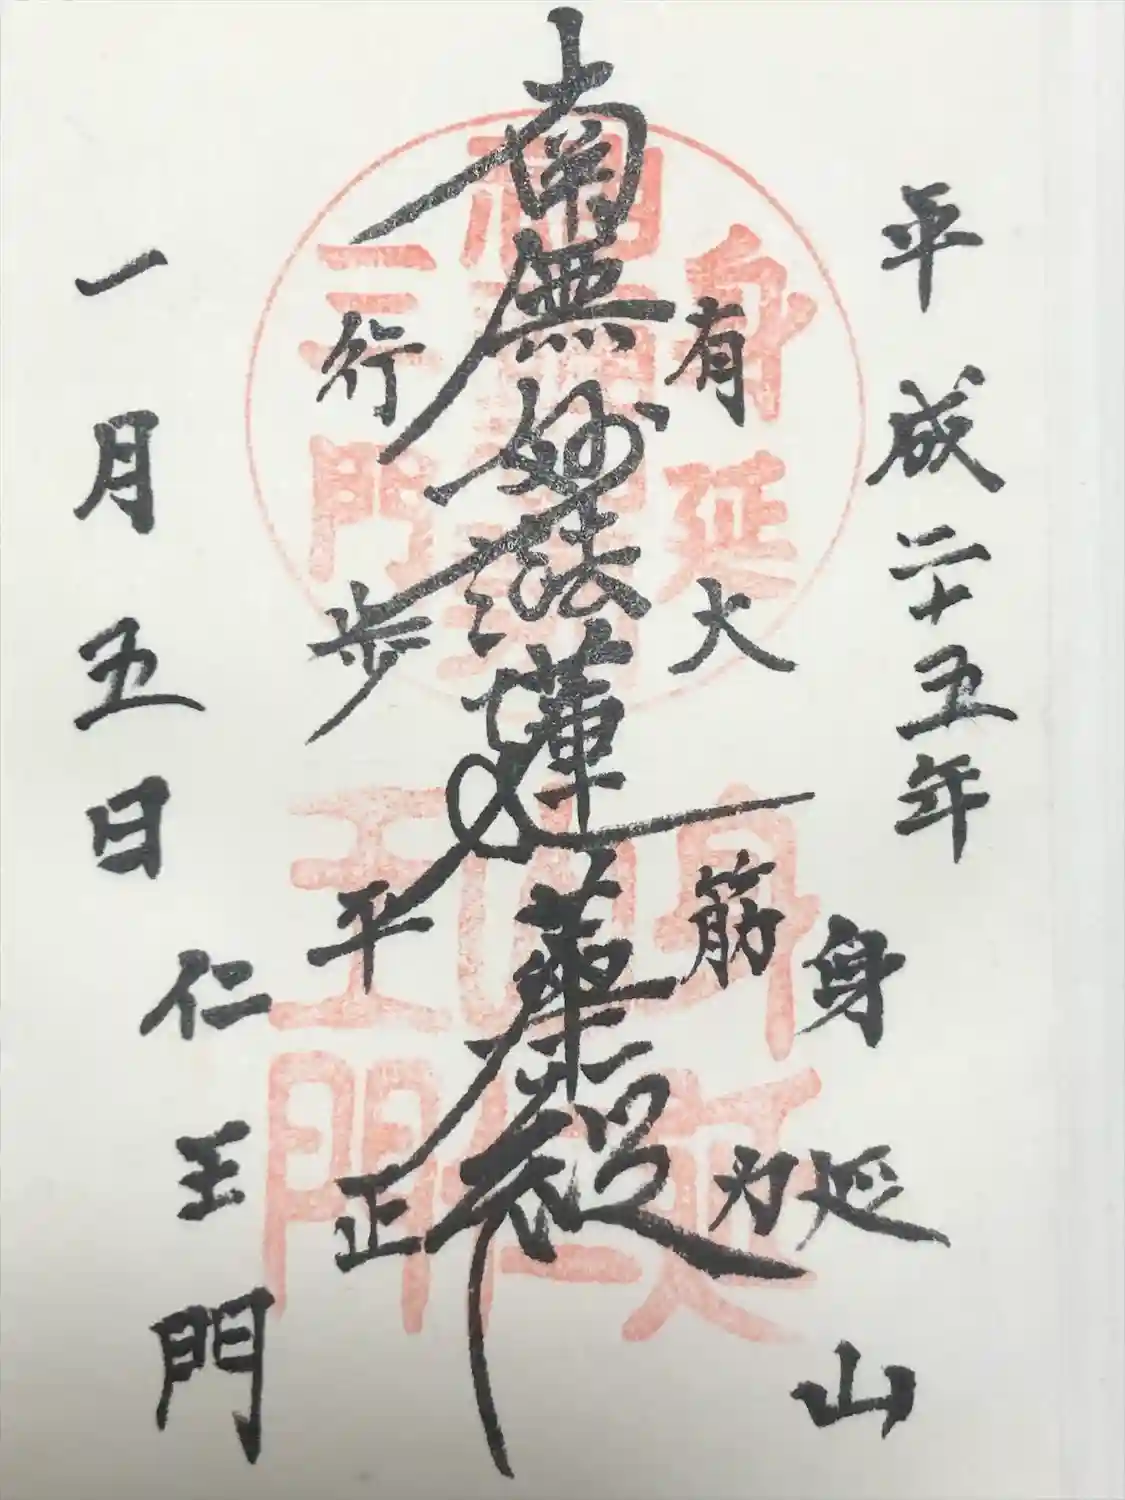 平成二十五年
身延山
有大筋力
南無妙法蓮華経
行歩平正
仁王門
一月五日
身延
三門
身延
山仁
王門